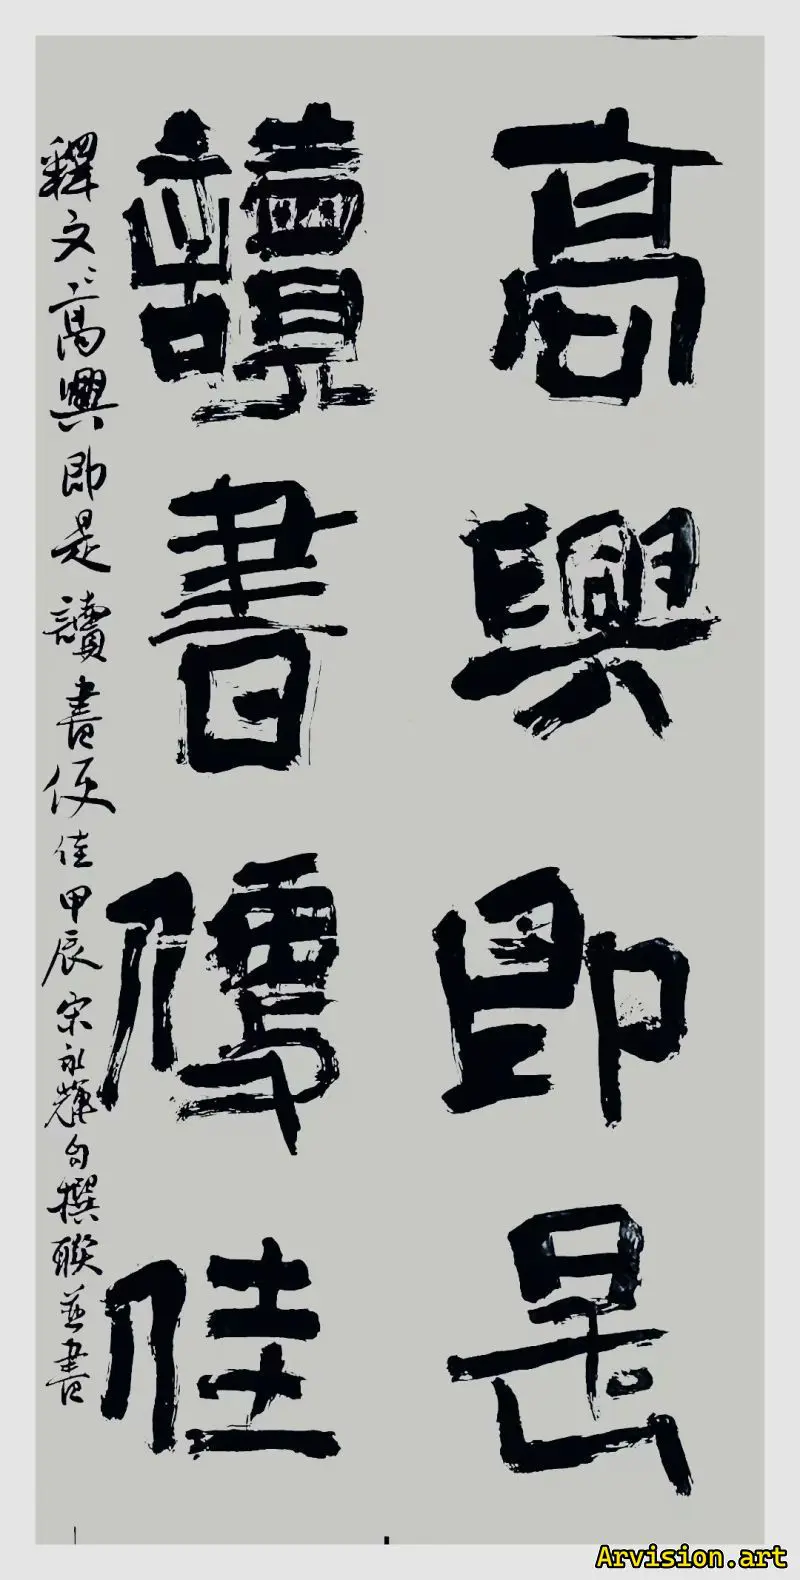 高興即是
讀書便佳
釋文：高興即是讀書便佳甲辰宋永輝自撰聯並書
Arvision.art